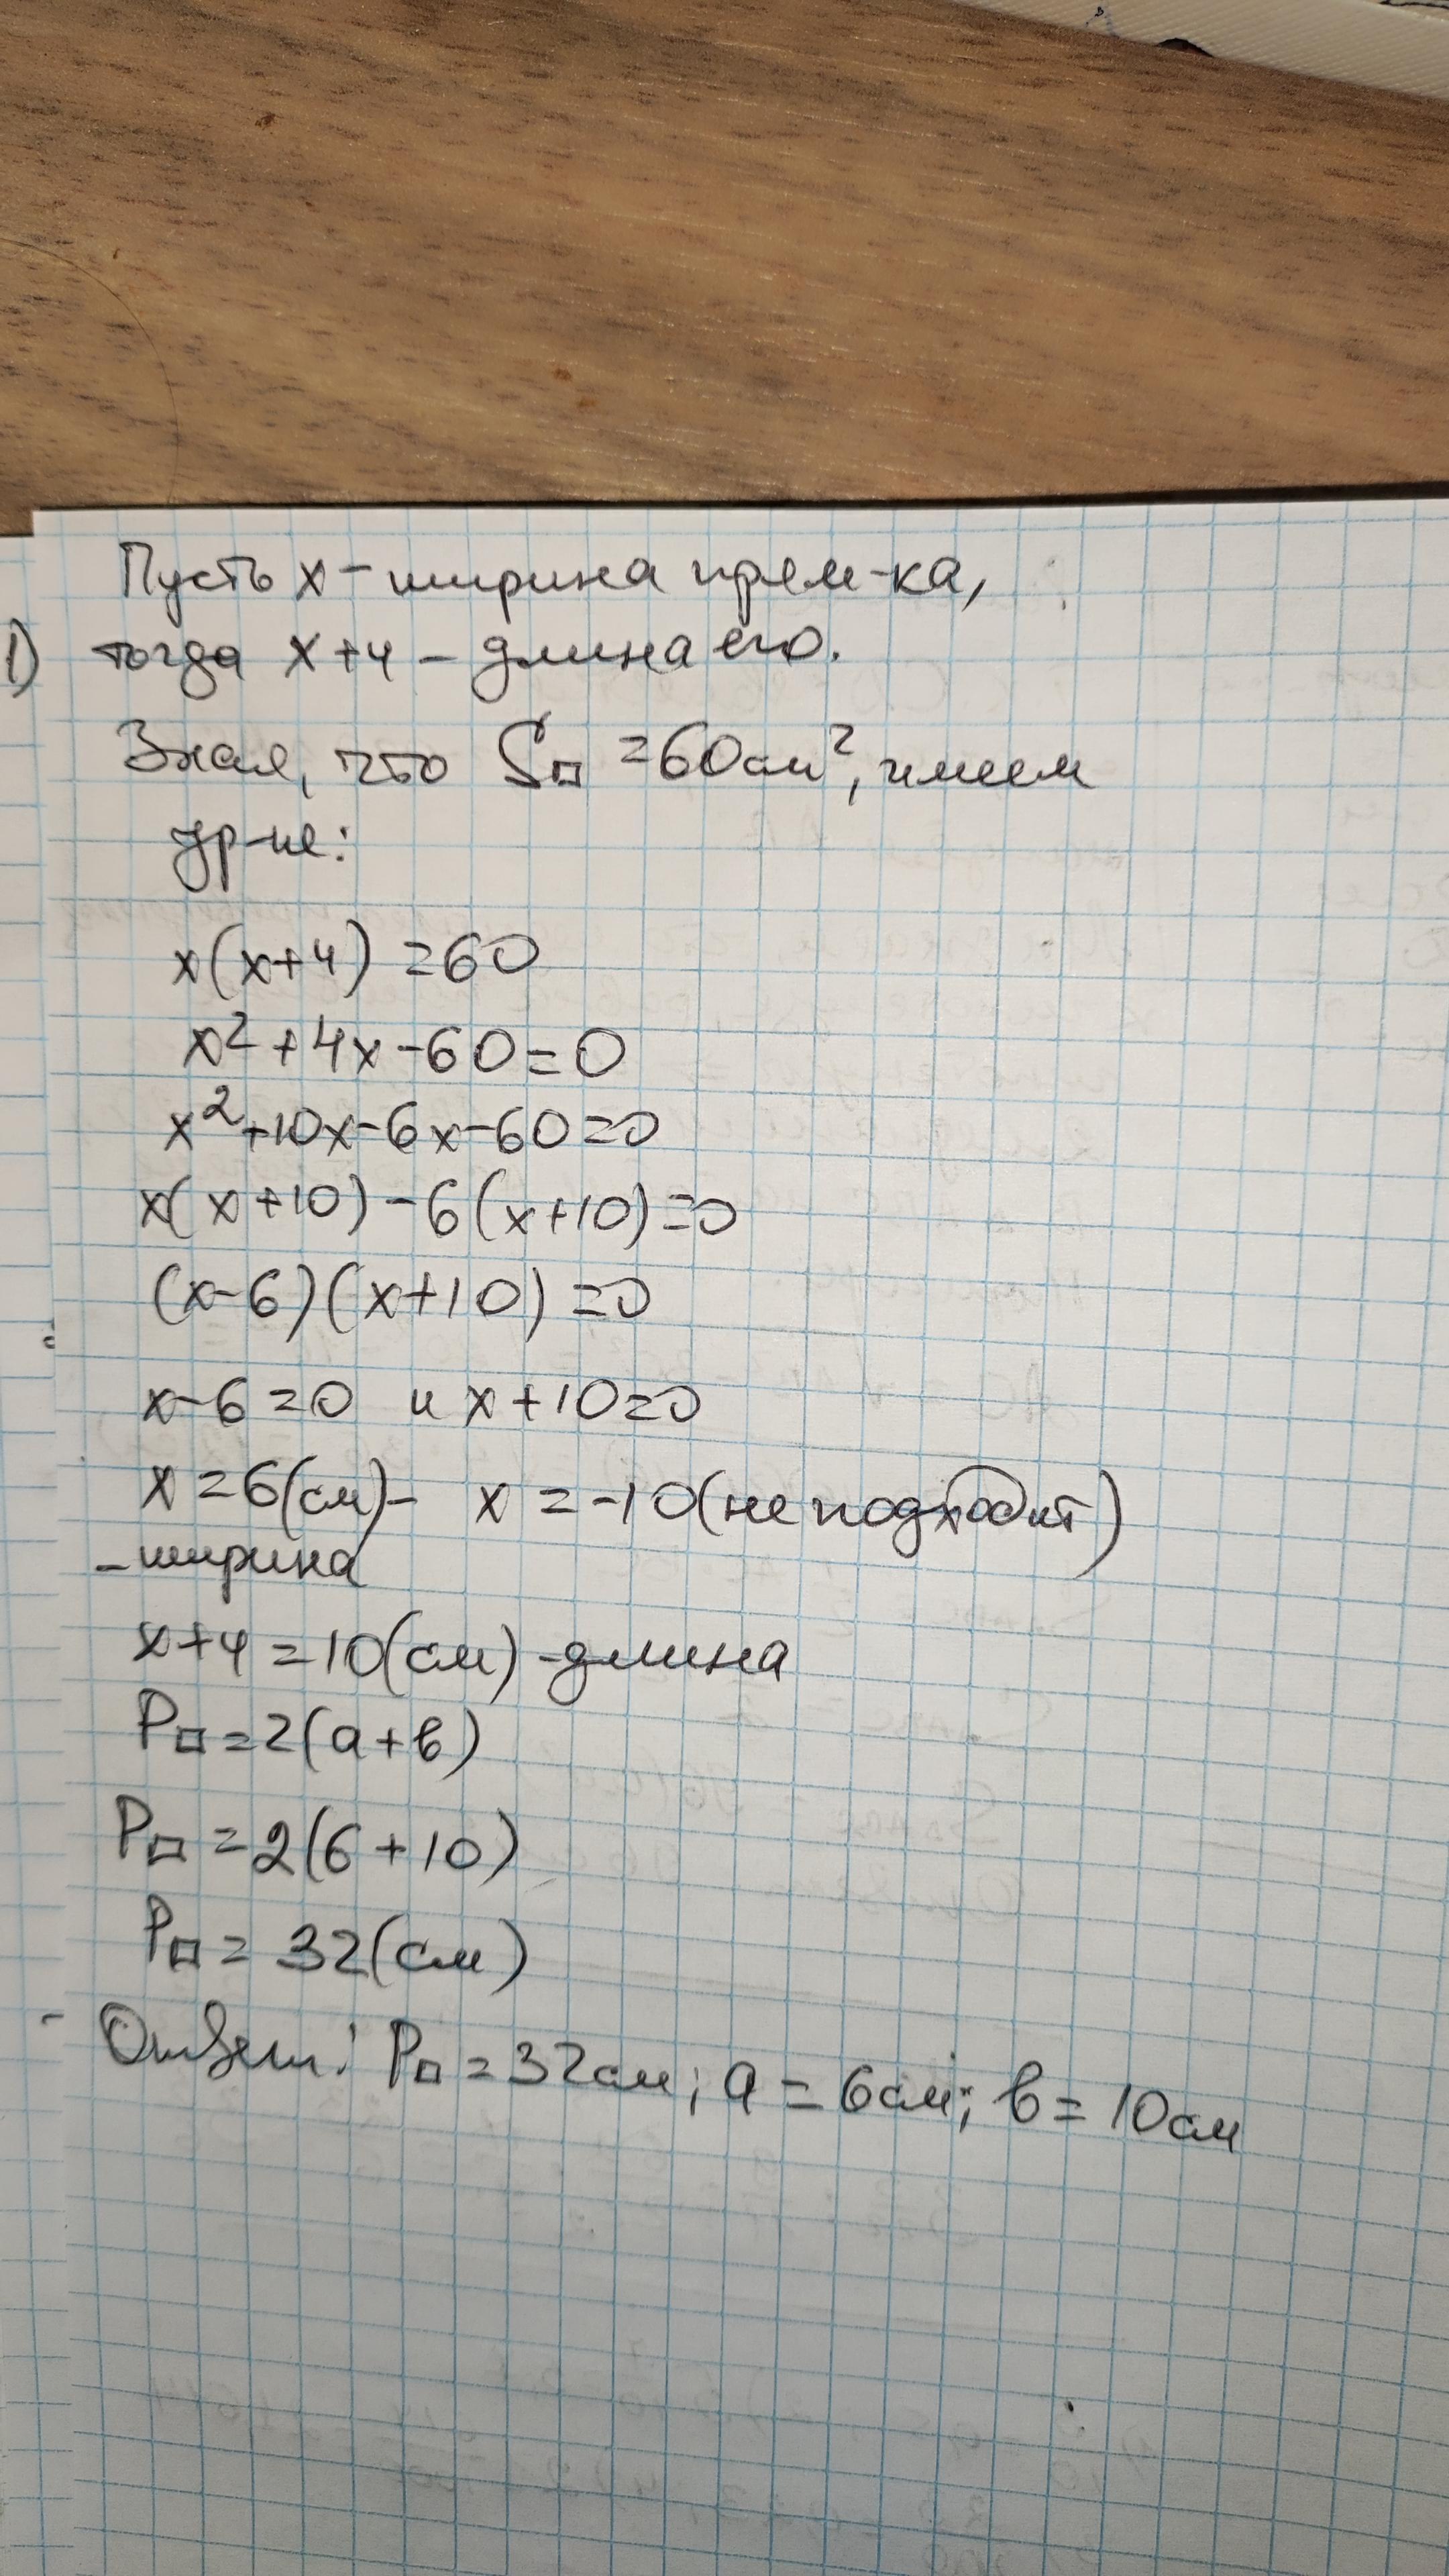 Пусть x - ширина прям-ка,
1) тогда x+4 - длина его.
Зная, что S□ = 60см², имеем
ур-ие:
x(x+4) = 60
x²+4x-60=0
x²+10x-6x-60=0
x(x+10)-6(x+10)=0
(x-6)(x+10)=0
x-6=0 и x+10=0
x=6(см)- x=-10(не подходит)
-ширина
x+4=10(см)-длина
P□=2(a+b)
P□=2(6+10)
P□=32(см)
Ответ: P□=32см; a=6см; b=10см